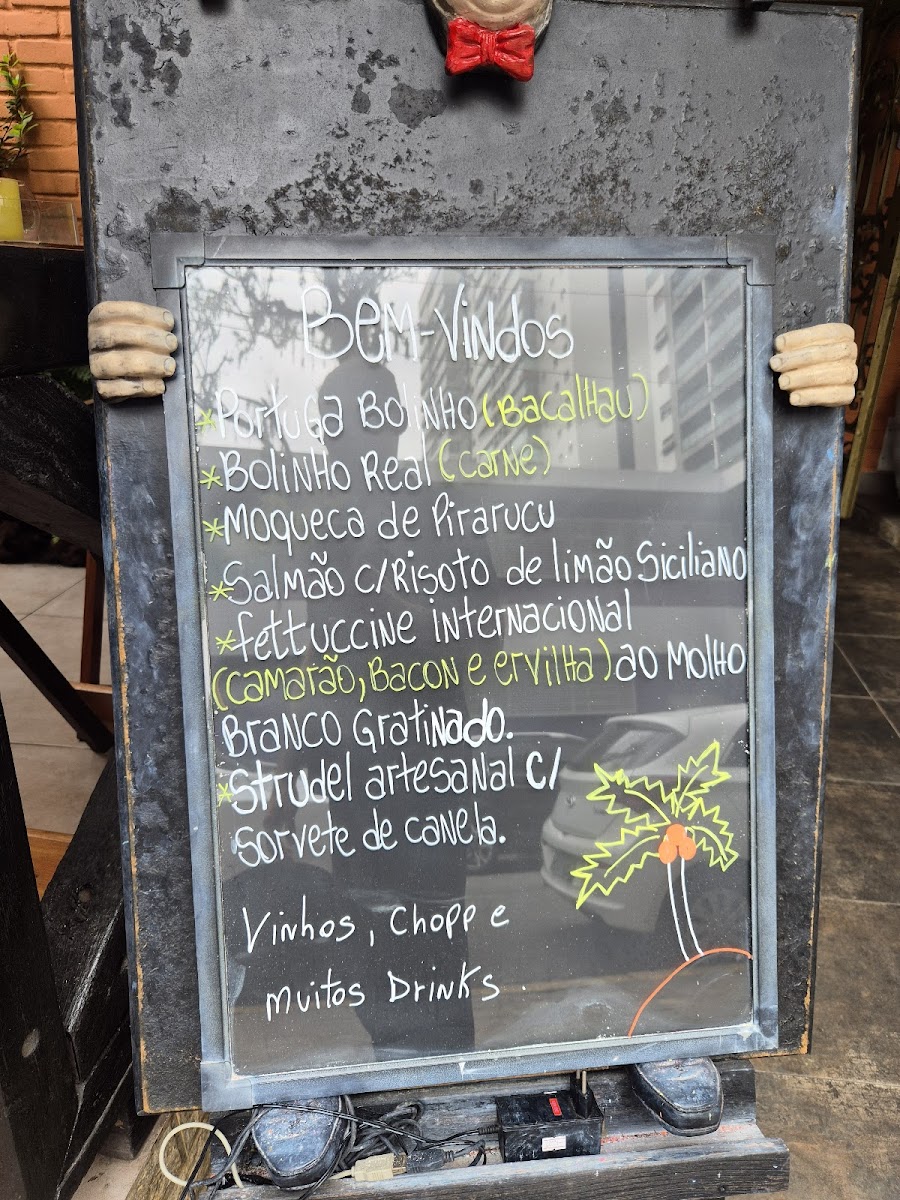 Bem-Vindos
*Portuga Bolinho (Bacalhau)
*Bolinho Real (carne)
*Moqueca de Pirarucu
*Salmão c/Risoto de limão Siciliano
*fettuccine internacional
(camarão, Bacon e ervilha) ao Molho
Branco Gratinado.
*Strudel artesanal c/
sorvete de canela.
Vinhos, Chopp e
muitos Drinks